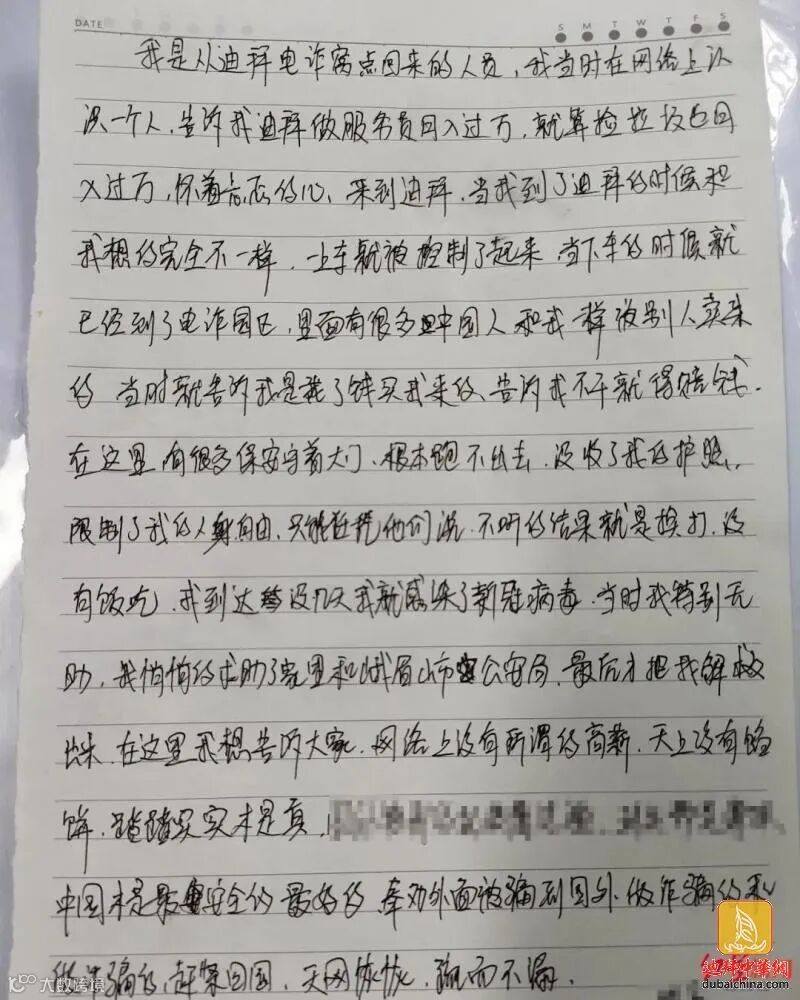 DATE
S M T W T F S
我是从迪拜电诈窝点回来的人员,我当时在网络上认
识一个人,告诉我迪拜做服务员月入过万,就算捡垃圾也月
入过万,怀着忐忑的心、来到迪拜,当我到了迪拜的时候和
我想的完全不一样,上车就被控制了起来 当下车的时候就
已经到了电诈园区,里面有很多中国人和我一样被别人卖来
的 当时就告诉我是花了钱买我来的、告诉我不干就得赔钱.
在这里有很多保安守着大门、根本跑不出去.没收了我的护照,
限制了我的人身自由、只能任凭他们说.不听的结果就是挨打.没
有饭吃.我到这没几天我就感染了新冠病毒.当时我特别无
助,我悄悄的求助了家里和峨眉山市公安局、最后才把我解救
出来.在这里我想告诉大家,网络上没有所谓的高薪,天上没有馅
饼,踏踏实实才是真,
中国才是最安全的 最好的 奉劝外面被骗到国外做诈骗的和
的,赶紧回国,天网恢恢,疏而不漏.
大数跨境
迪拜中华網
dubaichina.com